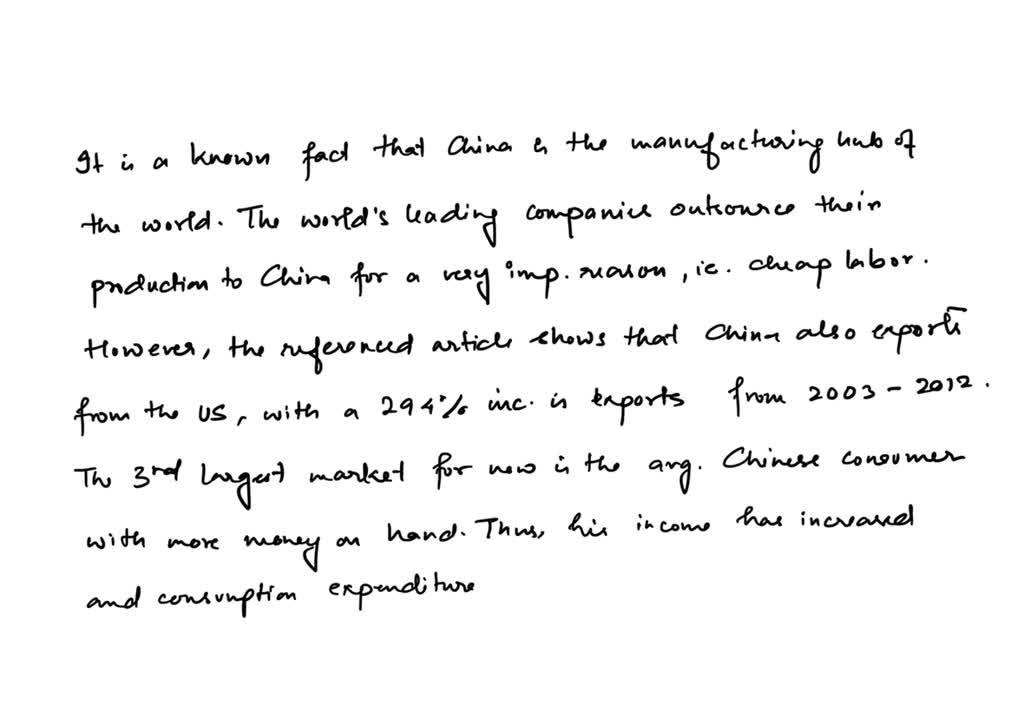 It is a known fact that China is the manufacturing hub of
the world. The world's leading companies outsource their
production to China for a very imp. reason, ie. cheap labor.
However, the referenced article shows that China also exports
from the US, with a 294% inc. in exports from 2003 - 2012.
The 3rd largest market for now is the avg. Chinese consumer
with more money on hand. Thus, his income has increased
and consumption expenditure